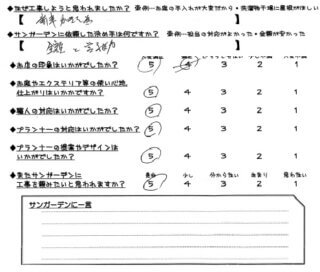 ◆なぜ工事しようと思われましたか?
【 】
◆サンガーデンに依頼した決め手は何ですか? 東例…担当の対応がよかった・金額が安かった
【 金額と 】
◆お店の印象はいかがでしたか? 5 4 3 2 1
◆お庭やエクステリア等の使い心地、
仕上がりはいかがですか? 5 4 3 2 1
◆職人の対応はいかがでしたか? 5 4 3 2 1
◆プランナーの対応はいかがでしたか? 5 4 3 2 1
◆プランナーの提案やデザインは
いかがでしたか? 5 4 3 2 1
◆またサンガーデンに 少し 分からない あまり 思わない
工事を頼みたいと思われますか? 5 4 3 2 1
サンガーデンに一言